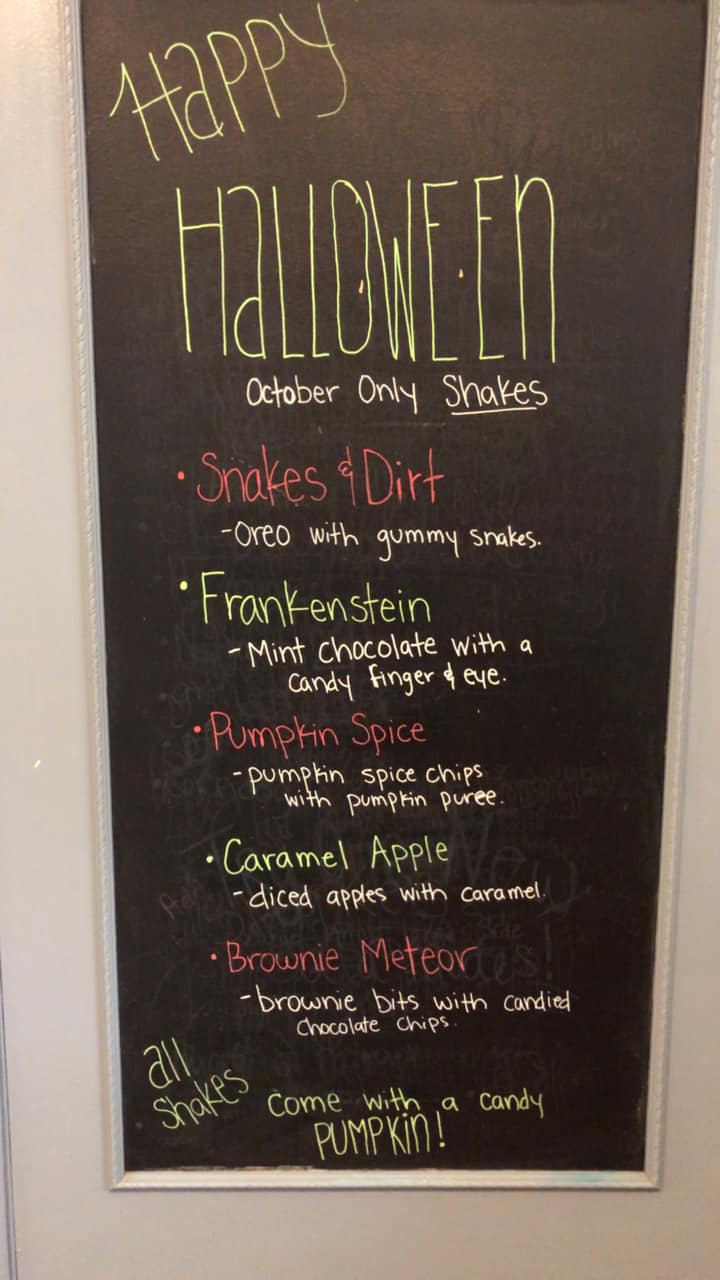 Happy
HaLLOWEEn
October Only Shakes
• Snakes & Dirt
- Oreo with gummy snakes.
• Frankenstein
- Mint chocolate with a
candy finger & eye.
• Pumpkin Spice
- pumpkin spice chips
with pumpkin puree.
• Caramel Apple
- diced apples with caramel.
• Brownie Meteor
- brownie bits with candied
chocolate chips.
all
shakes come with a candy
PUMPKin!